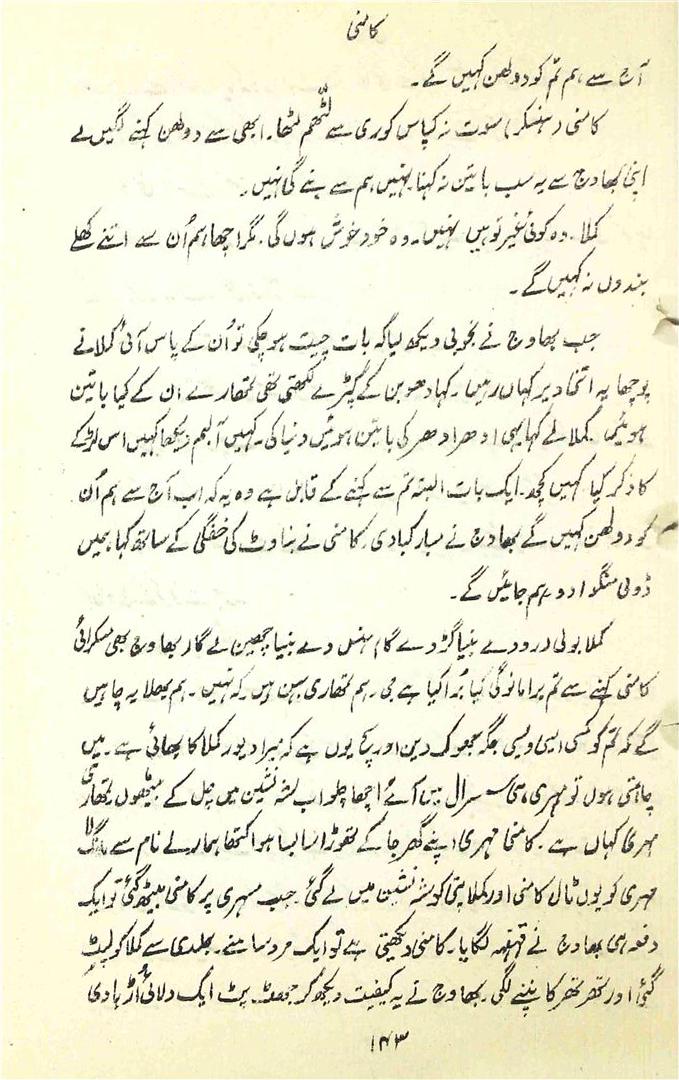 کامنی
آج سے ہم تم کو دولھن کہیں گے۔
کامنی (ہنسکر) سوت نہ کپاس کوری سے لٹھم لٹھا۔ ابھی سے دولھن کہنے لگیں لے
اپنی بھاوج سے یہ سب باتین نہ کہنا نہیں ہم سے بنے گی نہیں۔
کملا۔ وہ کوئی غیر تو ہیں نہیں۔ وہ خود خوش ہوں گی۔ مگر اچھا ہم اُن سے اتنے کھلے
بندوں نہ کہیں گے۔
جب بھاوج نے بخوبی دیکھ لیا کہ بات چیت ہو چکی تو اُن کے پاس آئی کملا نے
پوچھا یہ اتنی دیر کہاں رہیں۔ کہا دھوبن کے کپڑے لکھتی تھی تمھارے ان کے کیا باتین
ہوئیں۔ کملا نے کہا یہی ادھر ادھر کی باتین ہوئیں دنیا کی۔ کہیں البم دیکھا کہیں اس لڑکے
کا ذکر کیا کہیں کچھ۔ ایک بات البتہ تم سے کہنے کے قابل ہے وہ یہ کہ اب آج سے ہم اُن
کو دولھن کہیں گے بھاوج نے مبارکباد دی۔ کامنی نے بناوٹ کی خفگی کے ساتھ کہا ہمیں
ڈولی منگوا دو ہم جائیں گے۔
کملا بولی در ودے بنیا گڑ دے گا، ہنس دے بنیا چھین لے گا، بھاوج بھی مسکرائی
کامنی کہنے سے تم برا مانو گی کیا بُرا کیا ہے جی۔ ہم تمھاری بہن ہیں کہ نہیں۔ ہم بھلا یہ چاہیں
گے کہ تم کو کسی ایسی ویسی جگہ جھوک دین اور سچ یوں ہے کہ میرا دیور کملا کا بھائی ہے۔ میں
چاہتی ہوں تو میری ہی سسرال میں آئے اچھا چلو اب شہ نشین میں چل کے بیٹھوں تمھاری
مہری کہاں ہے۔ کامنی مہری اپنے گھر جا کے تھوڑا سا بسا ہوا کتھا ہمارے نام سے مانگ لا
مہری کو یوں ٹال کامنی اور کملا پتی کو شہ نشین میں لے گئی۔ جب مسہری پر کامنی بیٹھ گئی تو ایک
دفعہ ہی بھاوج نے قہقہہ لگایا۔ کامنی دیکھتی ہے تو ایک مرد سامنے۔ جلدی سے کملا کو لپٹ
گئی اور تھر تھر کانپنے لگی۔ بھاوج نے یہ کیفیت دیکھ کر جھٹ پٹ ایک دلائی اُڑہا دی
۱۴۳